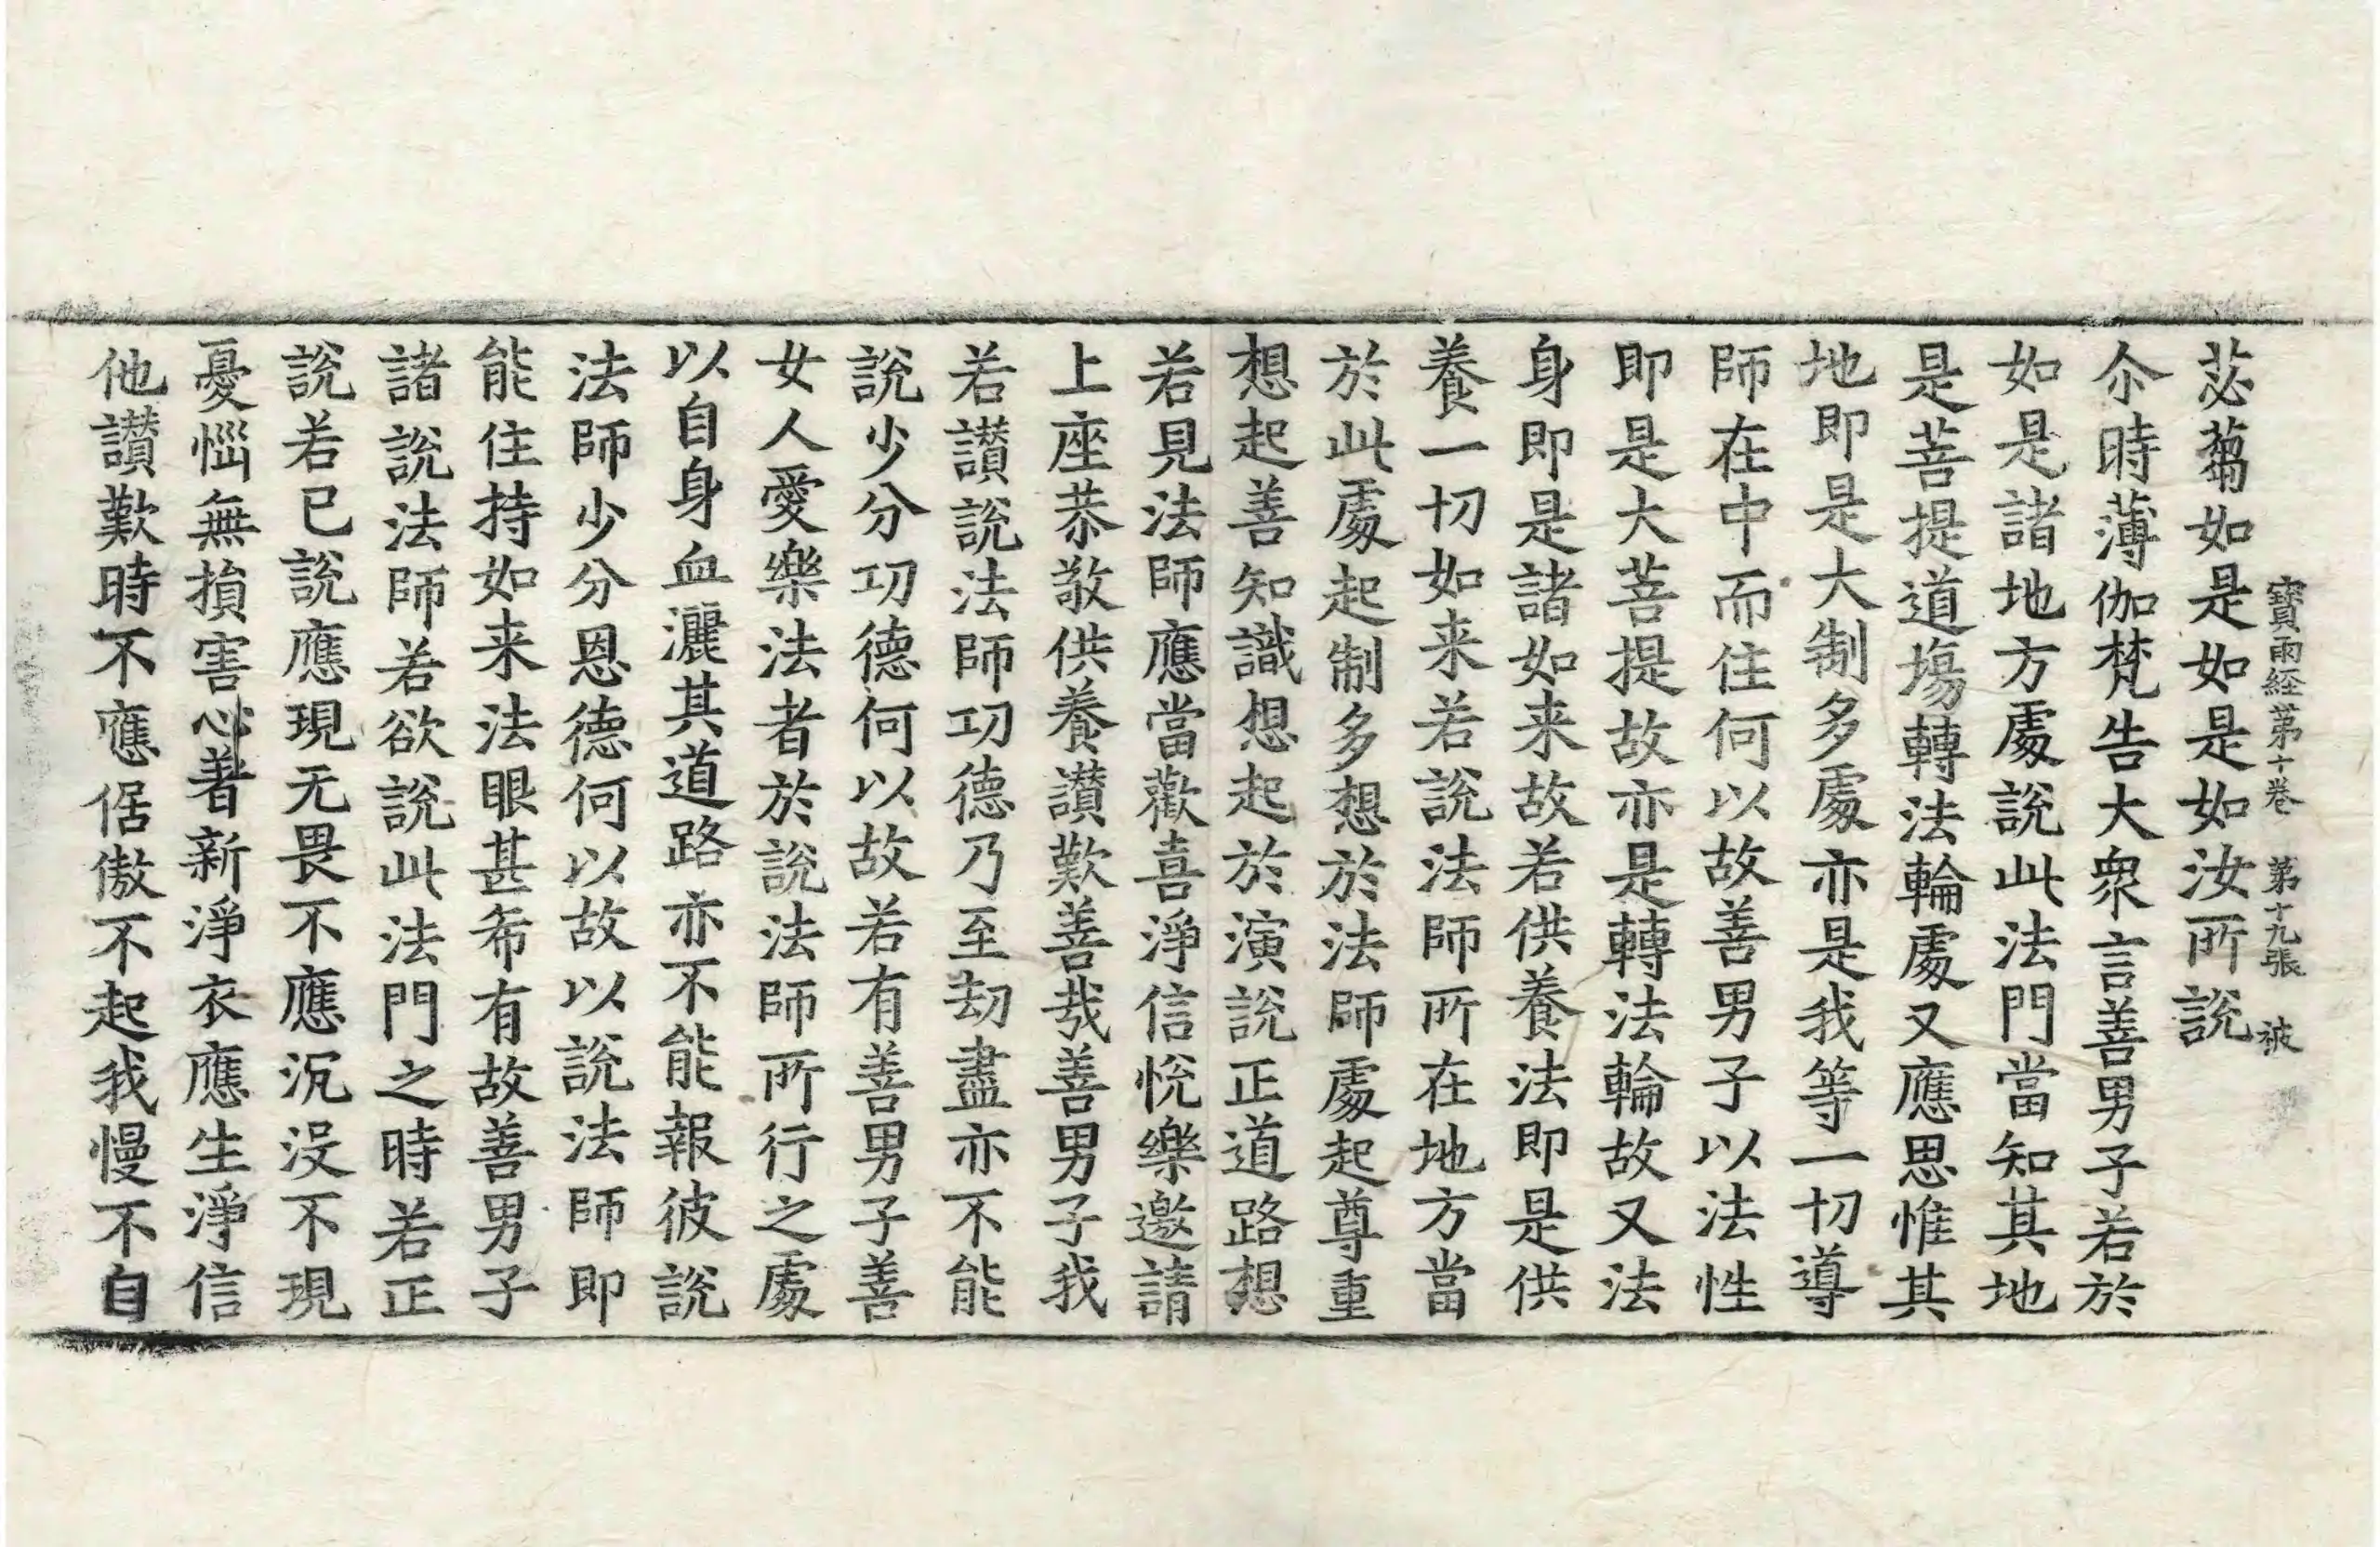 寶雨経第十巻 第十九張 被
苾蒭如是如是如汝所說
尒時薄伽梵告大衆言善男子若於
如是諸地方處說此法門當知其地
是菩提道塲轉法輪處又應思惟其
地即是大制多處亦是我等一切導
師在中而住何以故善男子以法性
即是大菩提故亦是轉法輪故又法
身即是諸如来故若供養法即是供
養一切如来若說法師所在地方當
於此處起制多想於法師處起尊重
想起善知識想起於演說正道路想
若見法師應當歡喜淨信悅樂邀請
上座恭敬供養讃歎善哉善男子我
若讃說法師功德乃至劫盡亦不能
說少分功德何以故若有善男子善
女人愛樂法者於說法師所行之處
以自身血灑其道路亦不能報彼說
法師少分恩德何以故以說法師即
能住持如来法眼甚希有故善男子
諸說法師若欲說此法門之時若正
說若已說應現无畏不應沉没不現
憂惱無損害心著新淨衣應生淨信
他讃歎時不應倨傲不起我慢不自